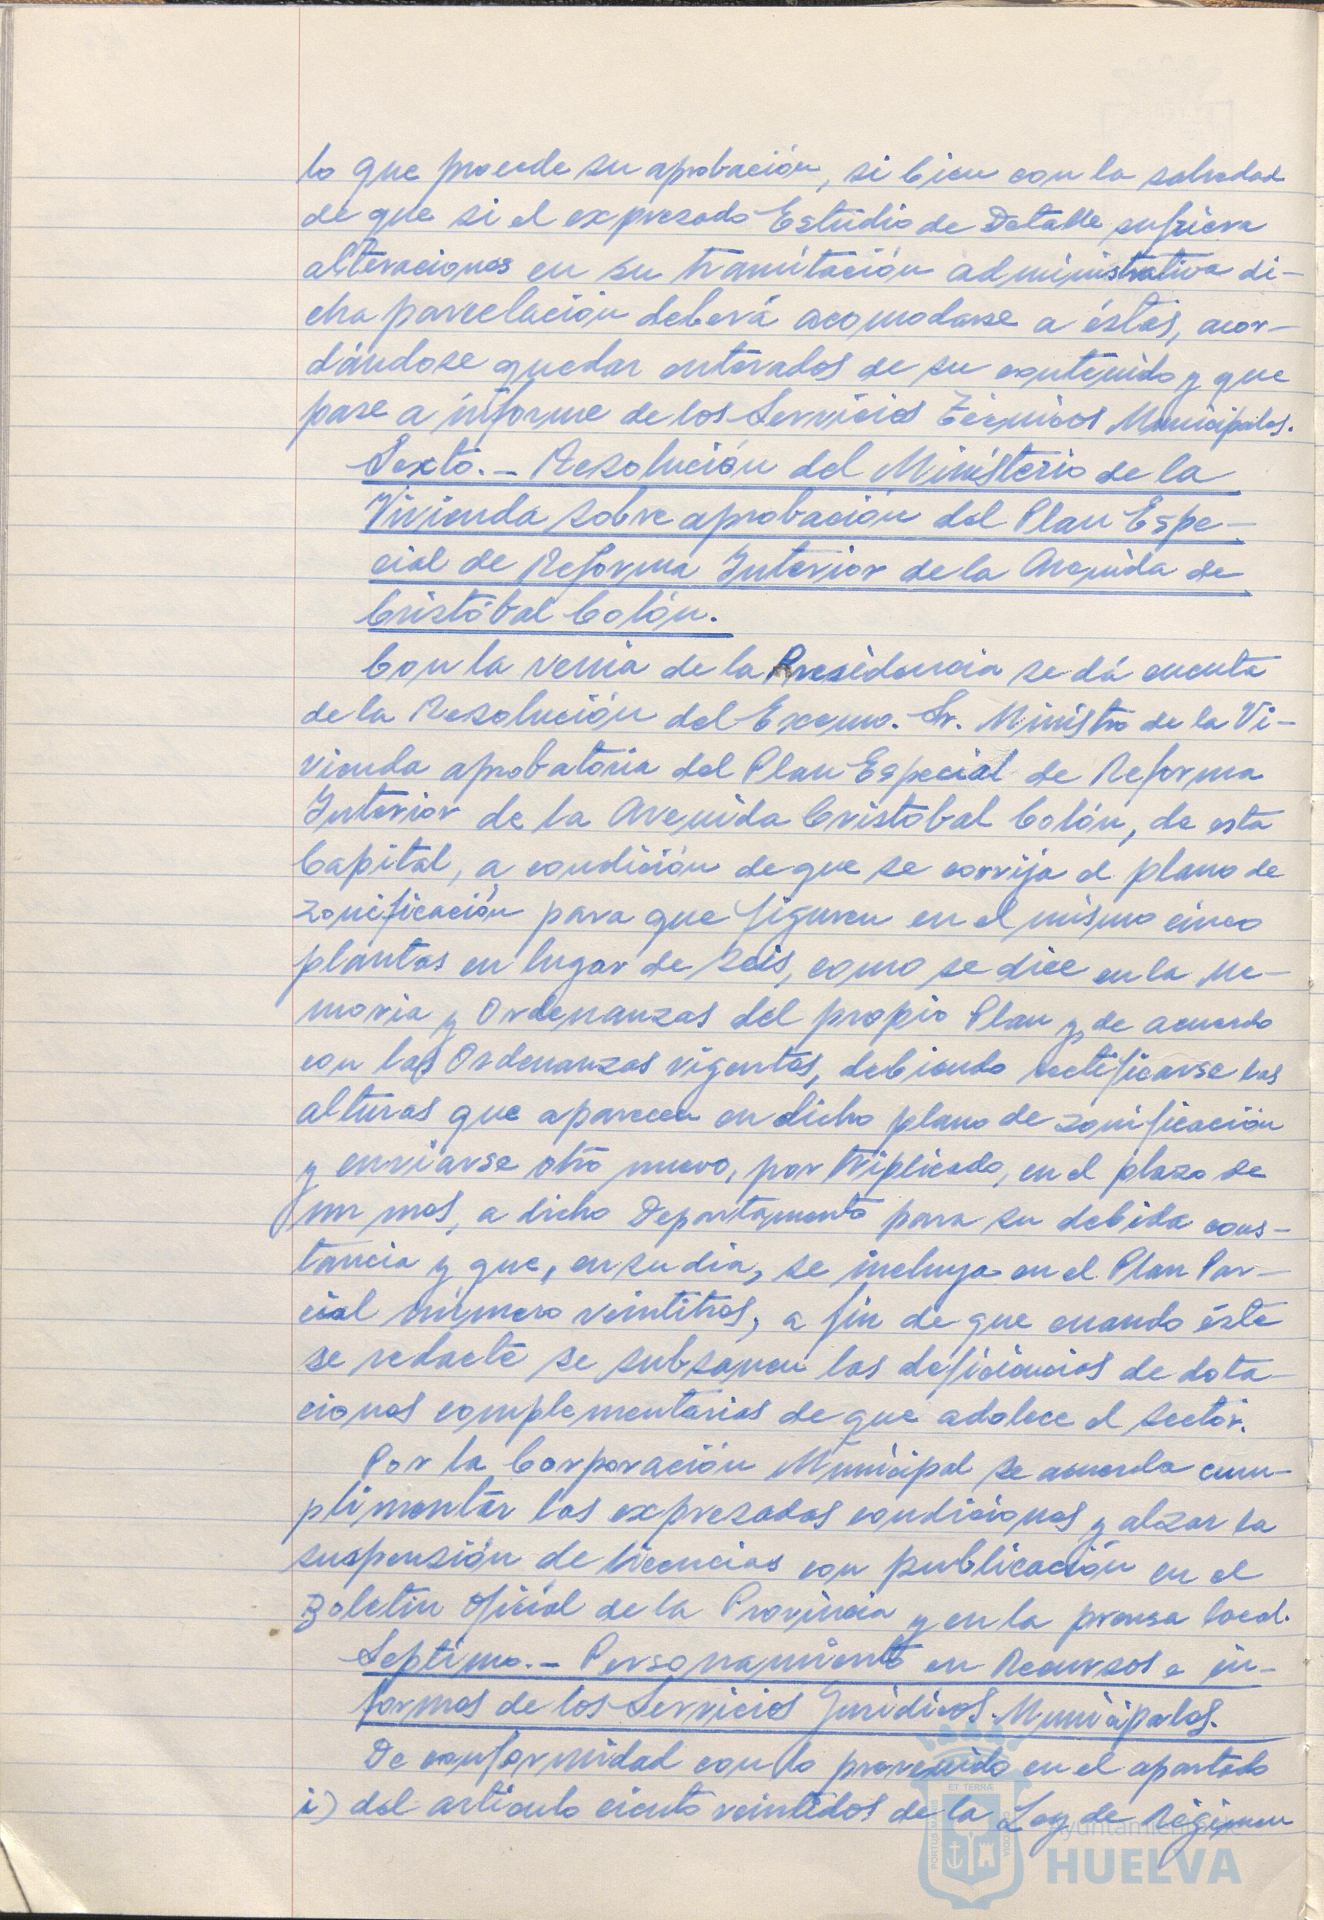 lo que procede su aprobación, si bien con la salvedad
de que si el expresado Estudio de Detalle sufriera
alteraciones en su tramitación administrativa di-
cha parcelación deberá acomodarse a éstas, acor-
dándose quedar enterados de su contenido y que
pase a informe de los Servicios Técnicos Municipales.
Sexto.- Resolución del Ministerio de la
Vivienda sobre aprobación del Plan Espe-
cial de Reforma Interior de la Avenida de
Cristóbal Colón.
Con la venia de la Presidencia se dá cuenta
de la Resolución del Excmo. Sr. Ministro de la Vi-
vienda aprobatoria del Plan Especial de Reforma
Interior de la Avenida Cristobal Colón, de esta
Capital, a condición de que se corrija el plano de
zonificación para que figuren en el mismo cinco
plantas en lugar de seis, como se dice en la Me-
moria y Ordenanzas del propio Plan y de acuerdo
con las Ordenanzas vigentes, debiendo rectificarse las
alturas que aparecen en dicho plano de zonificación
y enviarse otro nuevo, por triplicado, en el plazo de
un mes, a dicho Departamento para su debida cons-
tancia y que, en su dia, se incluya en el Plan Par-
cial número veintitres, a fin de que cuando éste
se redacte se subsanen las deficiencias de dota-
ciones complementarias de que adolece el sector.
Por la Corporación Municipal se acuerda cum-
plimentar las expresadas condiciones y alzar la
suspensión de licencias con publicación en el
Boletin Oficial de la Provincia y en la prensa local.
Septimo.- Personamiento en Recursos e in-
formes de los Servicios Jurídicos Municipales.
De conformidad con lo prevenido en el apartado
i) del artículo ciento veintidos de la Ley de Régimen
ET TERRÆ
Ayuntamiento de
HUELVA